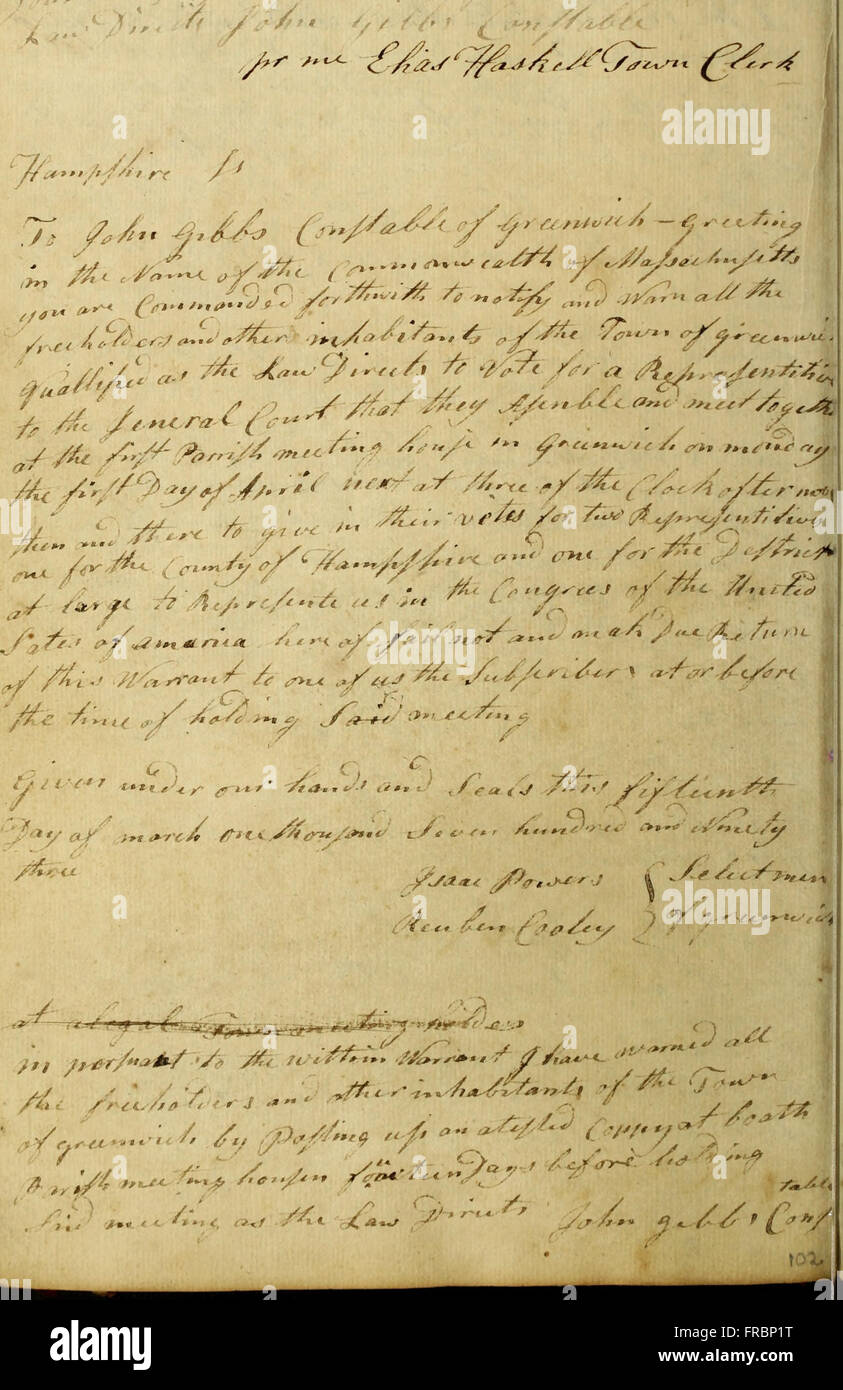 Law Directs John Gibbs Constable
pr me Elias Haskell Town Clerk
Hampshire Ss
To John Gibbs Constable of Greenwich – Greeting
in the Name of the Commonwealth of Massachusetts
you are Commanded forthwith to notify and Warn all the
freeholders and other inhabitants of the Town of greenwi
Quallified as the Law Directs to Vote for a Representitive
to the Jeneral Court that they Asenble and meet togeth
at the first Parrish meeting house in Greenwich on monday
the first Day of April next at three of the Clock after noon
then and there to give in their votes for two Representitives
one for the County of Hampshire and one for the Destrict
at large to Represente us in the Congrees of the United
States of amaraia here of fail not and mak Due Return
of this Warrant to one of us the Subscribers at or before
the time of holding Said meeting
Given under our hands and Seals this fifteenth
Day of march one thousand Seven hundred and Ninety
three
Isaac Powers { Selectmen
Reuben Cooley of greenwich
at a legal Town meeting holden
in porsuant to the within Warrant I have warned all
the freeholders and other inhabitants of the Town
of greenwich by Posting up an atested Coppy at boath
Parish meeting housen fourteen Days before holding
Sid meeting as the Law Directs John gibbs Constable
102
a alamy
alamy stock photo
FRBP1T
www.alamy.com